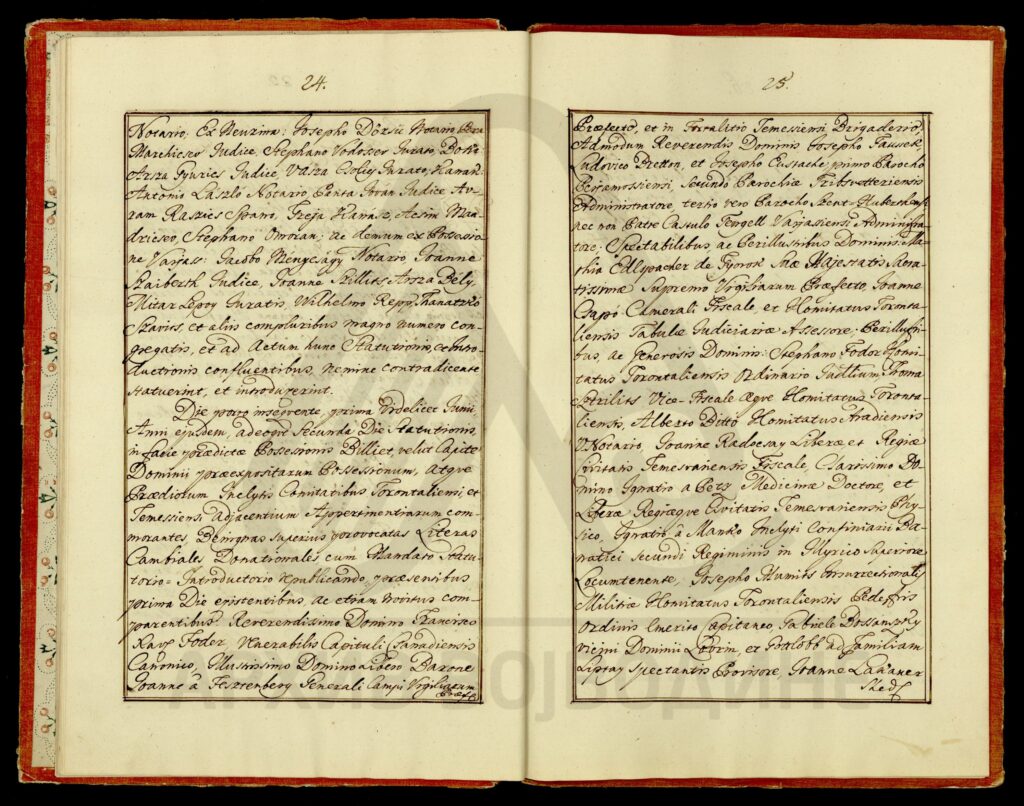 24.
Notario; Ex Neuzina: Josepho Dörsii Notario,
Marchicsev Judice, Stephano Vodoser Jurato,
Arsza Gyurics Judice, Vasza Jurato,
Antonio László Notario, Panta Judice Av-
ram Raszics Spano, Greja Kanász, Acsim Maa-
dricsev, Stephano Omoran; ac demum ex Possessio-
ne Varjass: Jacobo Menyesagy Notario Joanne
Szaiberth Judice, Joanne Szillits Arsza Bély,
Mitar Lepoy Juratis Wilhelmo Repp, Thanatzko
Szavics, et aliis compluribus magno numero con-
gregatis, et ad Actum hunc Statutionis, et Intro-
ductionis confluentibus, nemine contradicente
statuerint, et introduxerint.
Die porro insequente, prima videlicet Junii
Anni ejusdem, adeoque secunda Die Statutionis,
in facie praedictae Possessionis Billiet, velut Capite
Dominii praeexpositarum Possessionum, atque
Praediorum Inclytis Comitatibus Torontaliensi, et
Temessiensi Adjacentium Appertinentiarum com-
morantes, benignas superius provocatas Literas
Cambiales Donationales cum Mandato Statu-
torio-Introductorio republicando, praesentibus
prima Die existentibus, ac etiam novitus com-
parentibus Reverendissimo Domino Francisco
Xav: Foder, Venerabilis Capituli Csanadiensis
Canonico, Illustrissimo Domino aideo Barone
Joanne à Fesztenberg Generali Campi Vigiliarum
Praef-
25.
Praefecto, et in Fortalitio Temessiensi Brigaderio,
Admodum Reverendis Dominis Josepho Taussek,
Ludovico Pretton, et Josepho Eustache, primo Parocho
Bessenossiensi, secundo Parochiae Tribsvetteriensis
Administratore, tertio vero Parocho Szent-Huberthensi,
nec non Patre Castulo Fengell Varjasiensi Administra-
tore; Spectabilibus ac Perillustribus Dominis Ma-
thia Edlspacher de Gyorok Suae Majestatis Sacra-
tissimae Supremo Vigiliarum Praefecto, Joanne
Csapó Camerali Fiscale, et Comitatus Toronta-
liensis Tabulae Judiciariae Assessore; Perillustri-
bus, ac Generosis Dominis: Stephano Fodor Comi-
tatus Torontaliensis Ordinario Judlium, Thoma
Szrilits Vice-Fiscale aeque Comitatus Toronta-
liensis, Alberto Ditto Comitatus Aradiensis
V. Notario, Joanne Radocsay Liberae et Regiae
Civitatis Temesvariensis Fiscale, Clarissimo Do-
mino Ignatio a Petz Medicinae Doctore, et
Liberae Regiaeque Civitatis Temesvariensis Phy-
sico, Ignatio à Manko Inclyti Confiniarii Ba-
natici secundi Regiminis in Illyrico Superiore
Locumtenente, Josepho Humits Insurrectionalis
Militiae Comitatus Torontaliensis Pedestris
Ordinis Emerito Capitaneo Gabriele Bossanszky
vicini Dominii Lovrin, et Gotlobb ad Familiam
Liptay Spectantis Provisore, Joanne